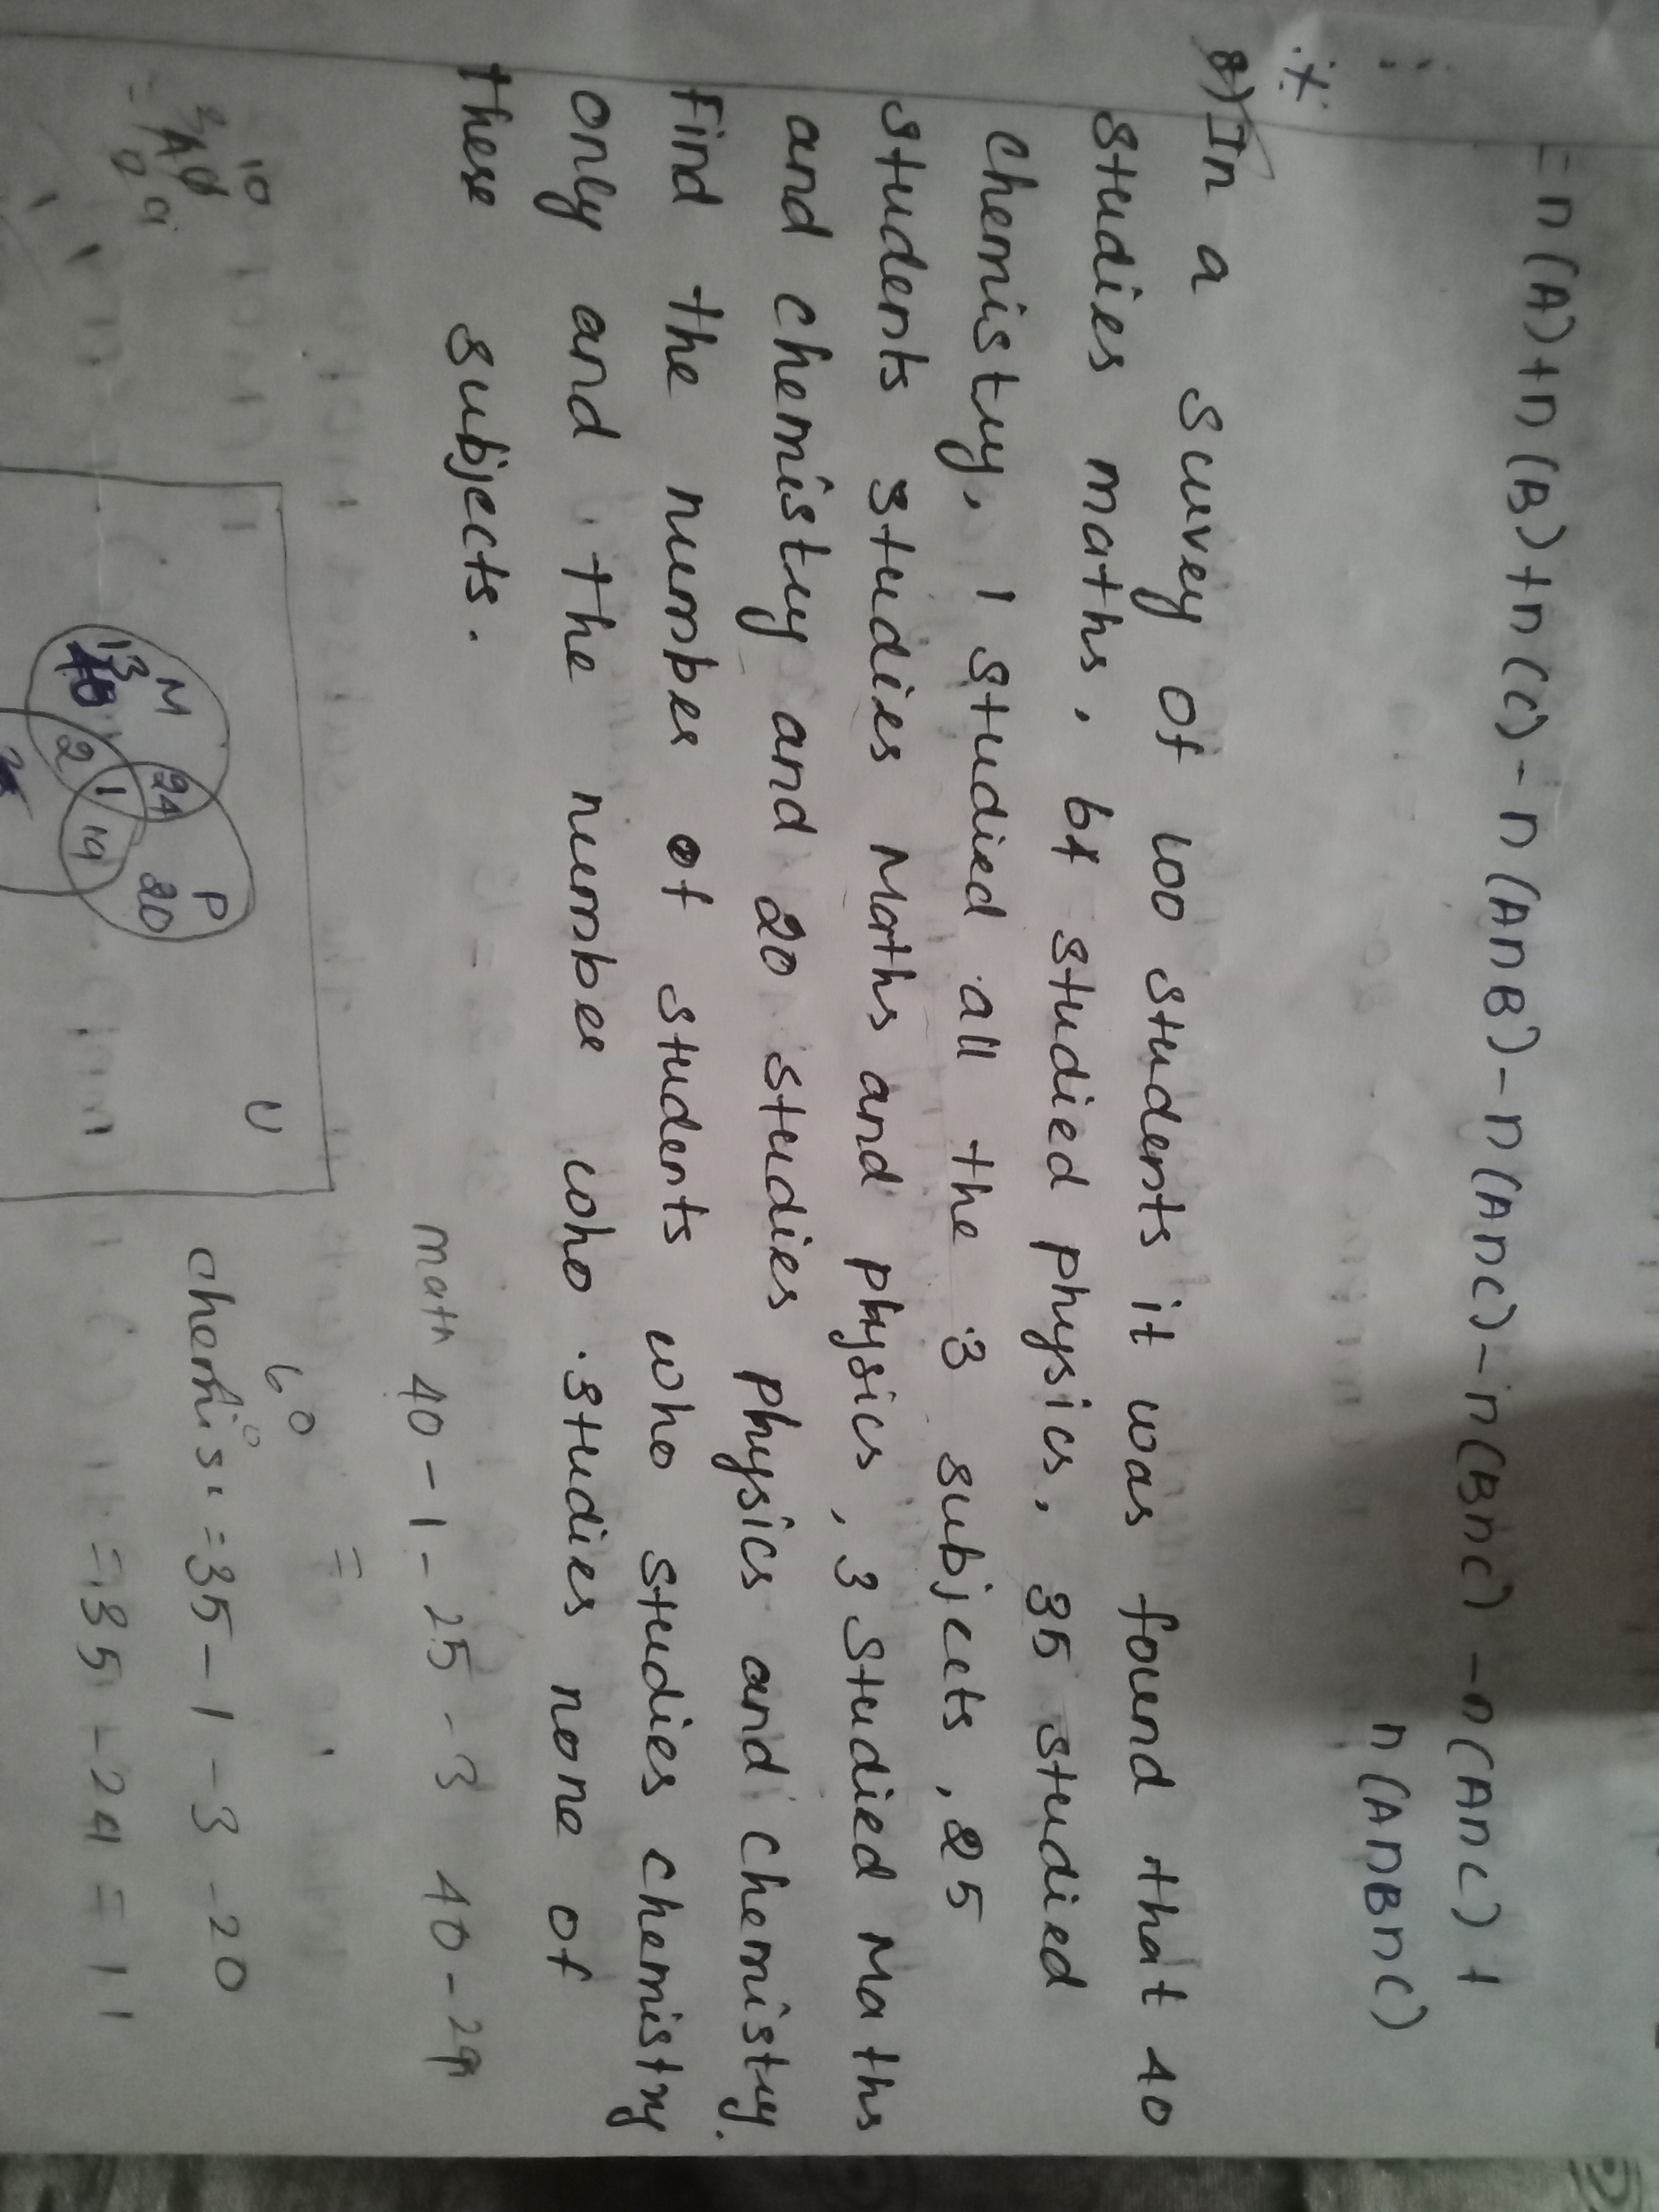 = n(A)+n(B)+n(C)-n(AnB)-n(AnC)-n(BnC)-n(AnC)+
n(AnBnC)
8) In a survey of 100 students it was found that 40
studies maths, 64 studied physics, 35 studied
chemistry, 1 studied all the 3 subjects, 25
students studies Maths and physics, 3 studied Maths
and chemistry and 20 studies physics and chemistry.
Find the number of students who studies chemistry
only and the number who studies none of
these subjects.
math 40-1-25-3 40-29
=
60
chemis = 35-1-3-20
= 35-24 = 11
10
U
M P
13 24 20
2 1 19